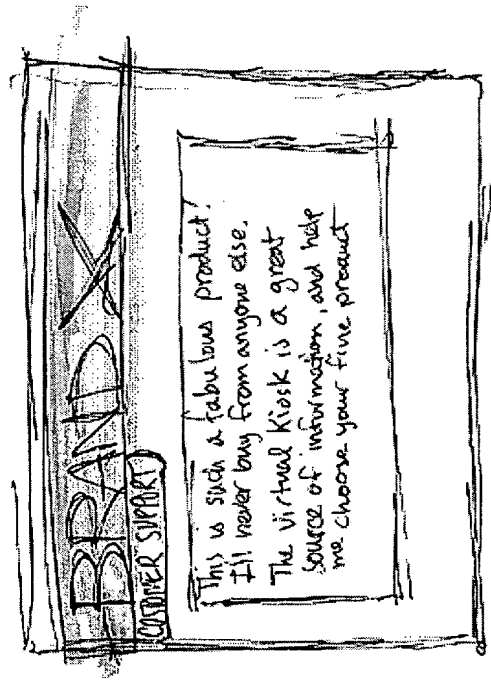 BRAND X
CUSTOMER SUPPORT
This is such a fabulous product!
I'll never buy from anyone else.
The virtual kiosk is a great
source of information, and help
me choose your fine product